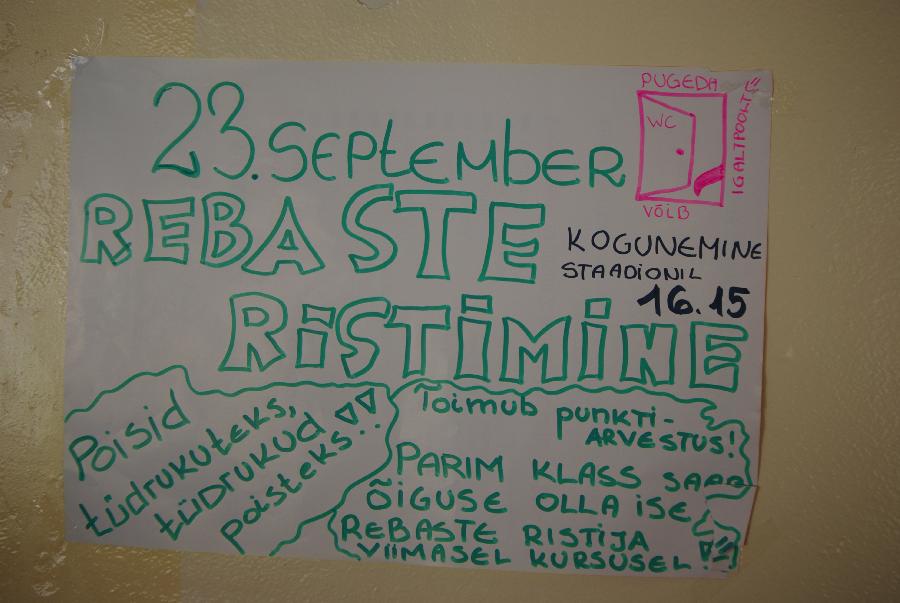 23. SEPtEMBER
REBASTE
RISTIMINE
PUGEDA
WC
VÕIB
IGALTPOOLT!!
KOGUNEMINE
STAADIONIL
16.15
Poisid
tüdrukuteks,
tüdrukud
poisteks!!
Toimub punkti-
ARVESTUS!
PARIM KLASS SAAB
ÕIGUSE OLLA ISE
REBASTE RISTIJA
VIIMASEL KURSUSEL!!!